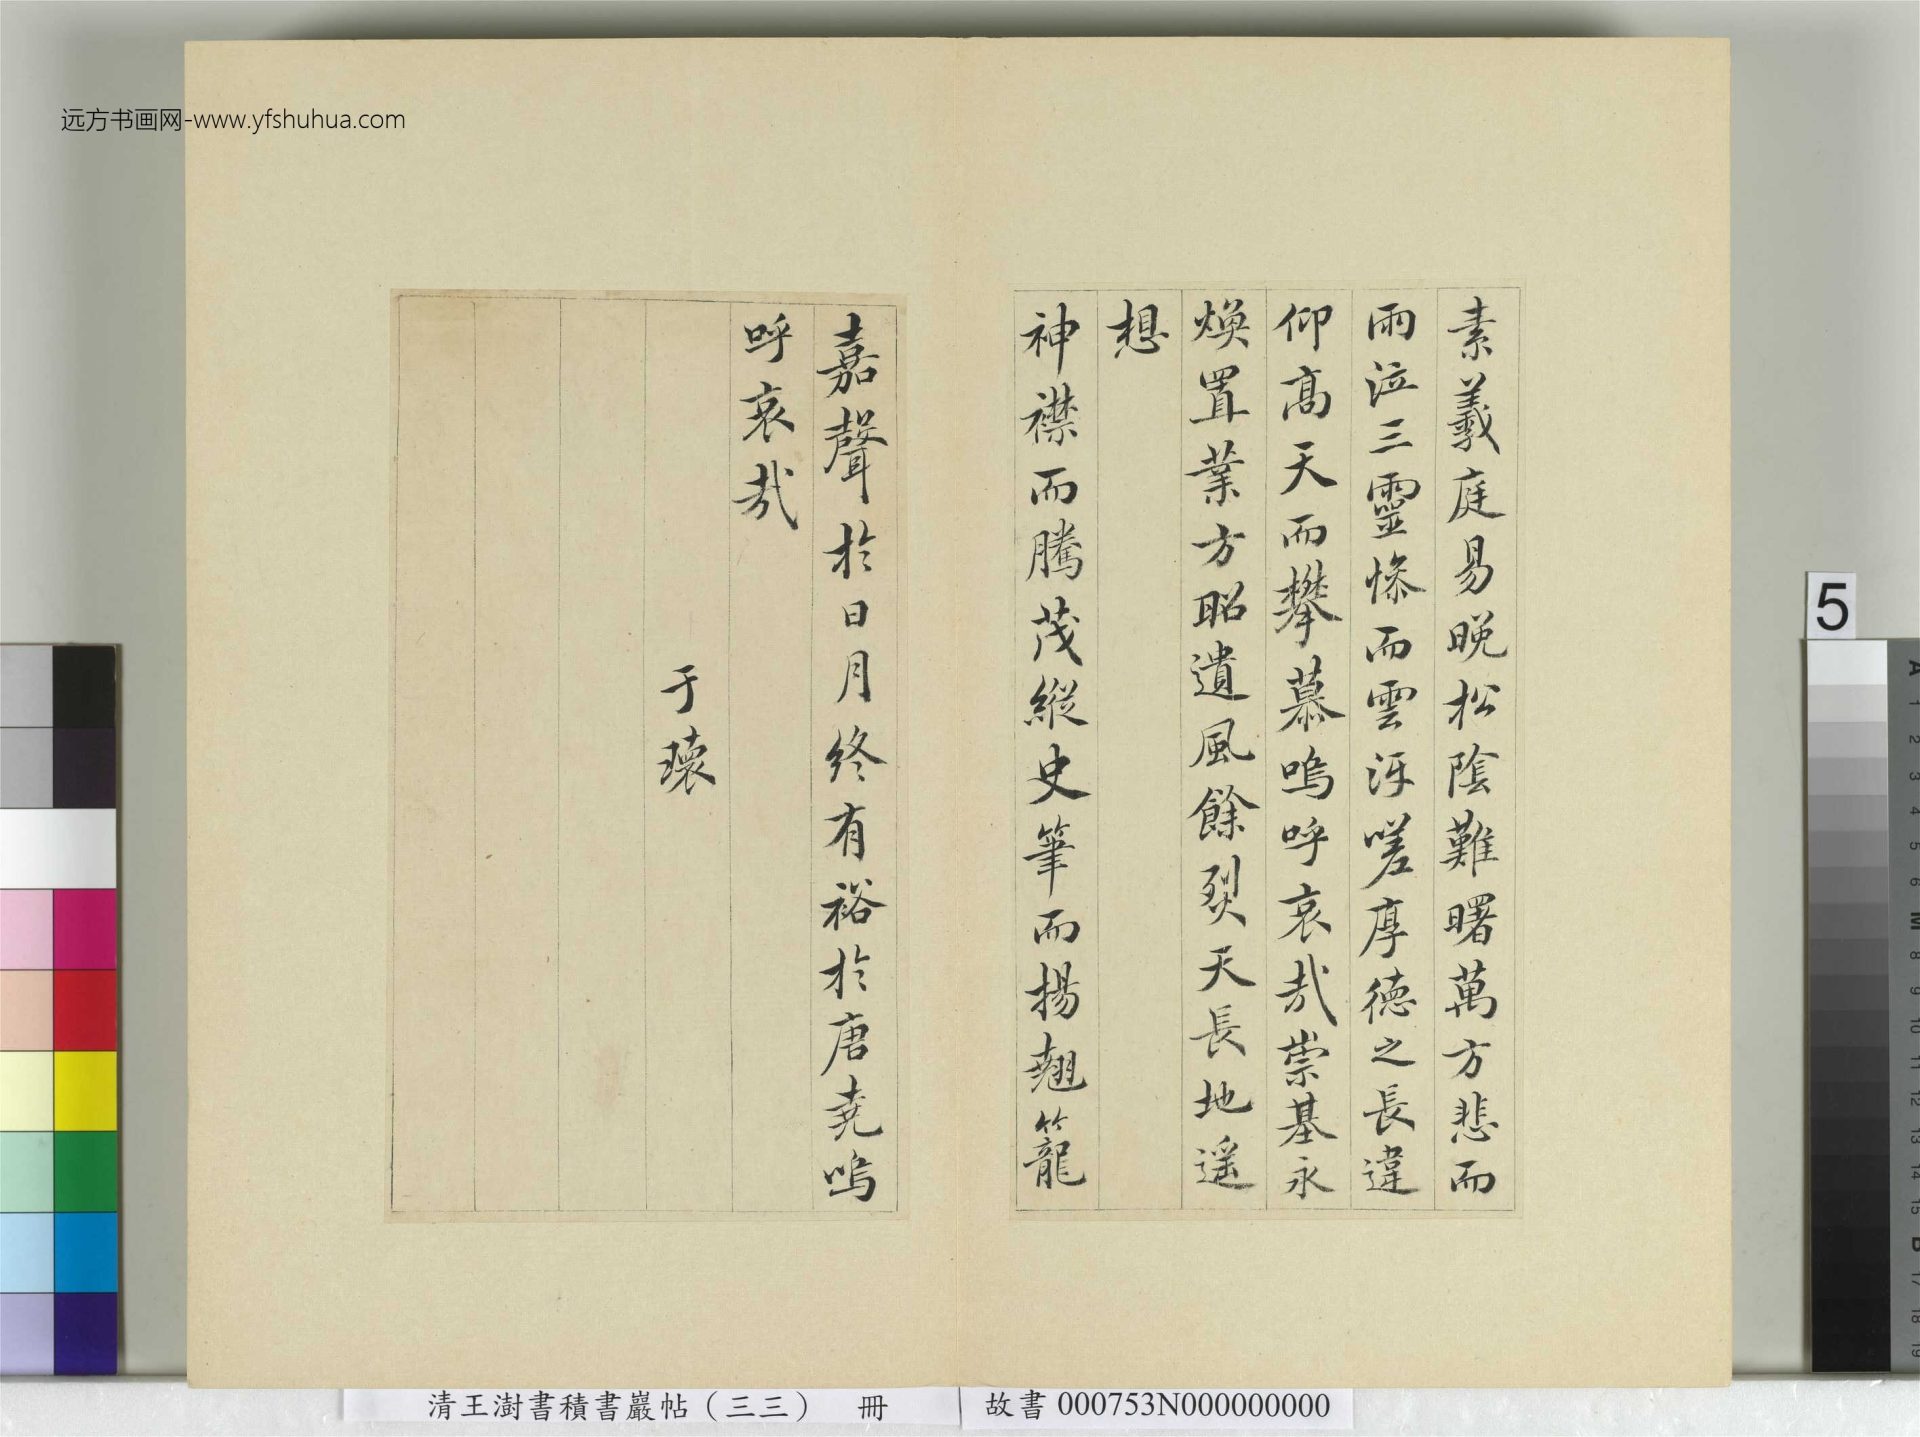 远方书画网-www.yfshuhua.com
素羲庭易晚松陰難曙萬方悲而
雨泣三靈慘而雲沍嗟厚德之長違
仰高天而攀慕嗚呼哀哉崇基永
煥置業方昭遺風餘烈天長地遥
想
神襟而騰茂縱史筆而揚翹籠
嘉聲於日月終有裕於唐堯嗚
呼哀哉
于瓌
5
清王澍書積書巖帖（三三） 冊
故書 000753N000000000